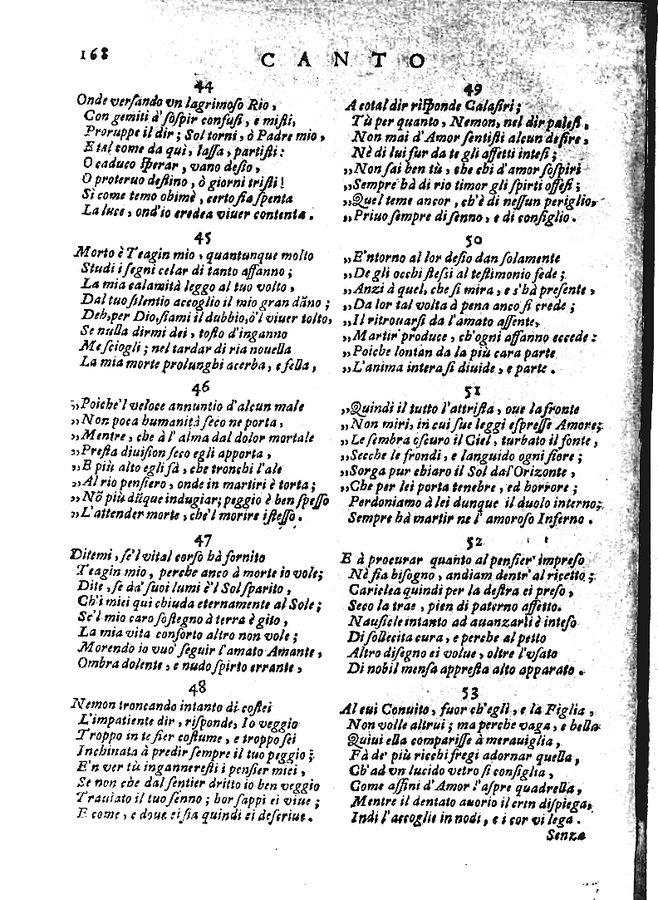 168
CANTO
44
Onde versando vn lagrimoso Rio,
Con gemiti d'sospir confusi, e misti,
Proruppe il dir; Sol torni, ò Padre mio,
E tal come da quì, lassa, partisti:
O caduco sperar, vano desio,
O proteruo destino, ò giorni tristi!
Sì come temo obimè, certo fia spenta
La luce, ond'io credea viuer contenta.
45
Morto è Teagin mio, quantunque molto
Studi i segni celar di tanto affanno;
La mia calamità leggo al tuo volto,
Dal tuo silentio accoglio il mio gran dāno;
Deh, per Dio, siami il dubbio, ò'l viuer tolto,
Se nulla dirmi dei, tosto d'inganno
Me sciogli; nel tardar di ria nouella
La mia morte prolunghi acerba, e fella,
46
„Poiche'l veloce annuntio d'alcun male
„Non poca humanità seco ne porta,
„Mentre, che à l'alma dal dolor mortale
„Presta diuision seco egli apporta,
„E più alto egli fà, che tronchi l'ale
„Al rio pensiero, onde in martiri è torta;
„Nō più dūque indugiar; peggio è ben spesso
„L'attender morte, che'l morire istesso.
47
Ditemi, se'l vital corso hà fornito
Teagin mio, perche anco à morte io vole;
Dite, se da' suoi lumi è'l Sol sparito,
Ch'i miei qui chiuda eternamente al Sole;
Se'l mio caro sostegno à terra è gito,
La mia vita conforto altro non vole;
Morendo io vuo' seguir l'amato Amante,
Ombra dolente, e nudo spirto errante,
48
Nemon troncando intanto di costei
L'impatiente dir, risponde, Io veggio
Troppo in te fier costume, e troppo sei
Inchinata à predir sempre il tuo peggio;
E'n ver tù inganneresti i pensier miei,
Se non che dal sentier dritto io ben veggio
Trauiato il tuo senno; hor sappi ei viue;
E come, e doue ei sia quindi ei descriue.
49
A cotal dir risponde Calasiri;
Tù per quanto, Nemon, nel dir palesi,
Non mai d'Amor sentisti alcun desire,
Nè di lui fur da te gli affetti intesi;
„Non sai ben tù, che chi d'amor sospiri
„Sempre hà di rio timor gli spirti offesi;
„Quel teme ancor, ch'è di nessun periglio,
„Priuo sempre di senno, e di consiglio.
50
„E'ntorno al lor desio dan solamente
„De gli occhi stessi al testimonio fede;
„Anzi à quel, che si mira, e s'hà presente,
„Da lor tal volta à pena anco si crede;
„Il ritrouarsi da l'amato assente,
„Martir produce, ch'ogni affanno eccede:
„Poiche lontan da la più cara parte
„L'anima intera si diuide, e parte.
51
„Quindi il tutto l'attrista, oue la fronte
„Non miri, in cui sue leggi espresse Amore;
„Le sembra oscuro il Ciel, turbato il fonte,
„Secche le frondi, e languido ogni fiore;
„Sorga pur chiaro il Sol dal'Orizonte,
„Che per lei porta tenebre, ed horrore;
Perdoniamo à lei dunque il duolo interno;
Sempre hà martir ne l'amoroso Inferno.
52
E à procurar quanto al pensier impreso
Nè sia bisogno, andiam dentr'al ricetto;
Cariclea quindi per la destra ei preso,
Seco la trae, pien di paterno affetto.
Nausicle intanto ad auanzarli è inteso
Di sollecita cura, e perche al petto
Altro disegno ei volue, oltre l'vsato
Di nobil mensa appresta alto apparato.
53
Al cui Conuito, fuor ch'egli, e la Figlia,
Non volle altrui; ma perche vaga, e bella
Quiui ella comparisse à merauiglia,
Fà de' più ricchi fregi adornar quella,
Ch'ad vn lucido vetro si consiglia,
Come affini d'Amor l'aspre quadrella,
Mentre il dentato auorio il crin dispiega,
Indi l'accoglie in nodi, e i cor vi lega.
Senza